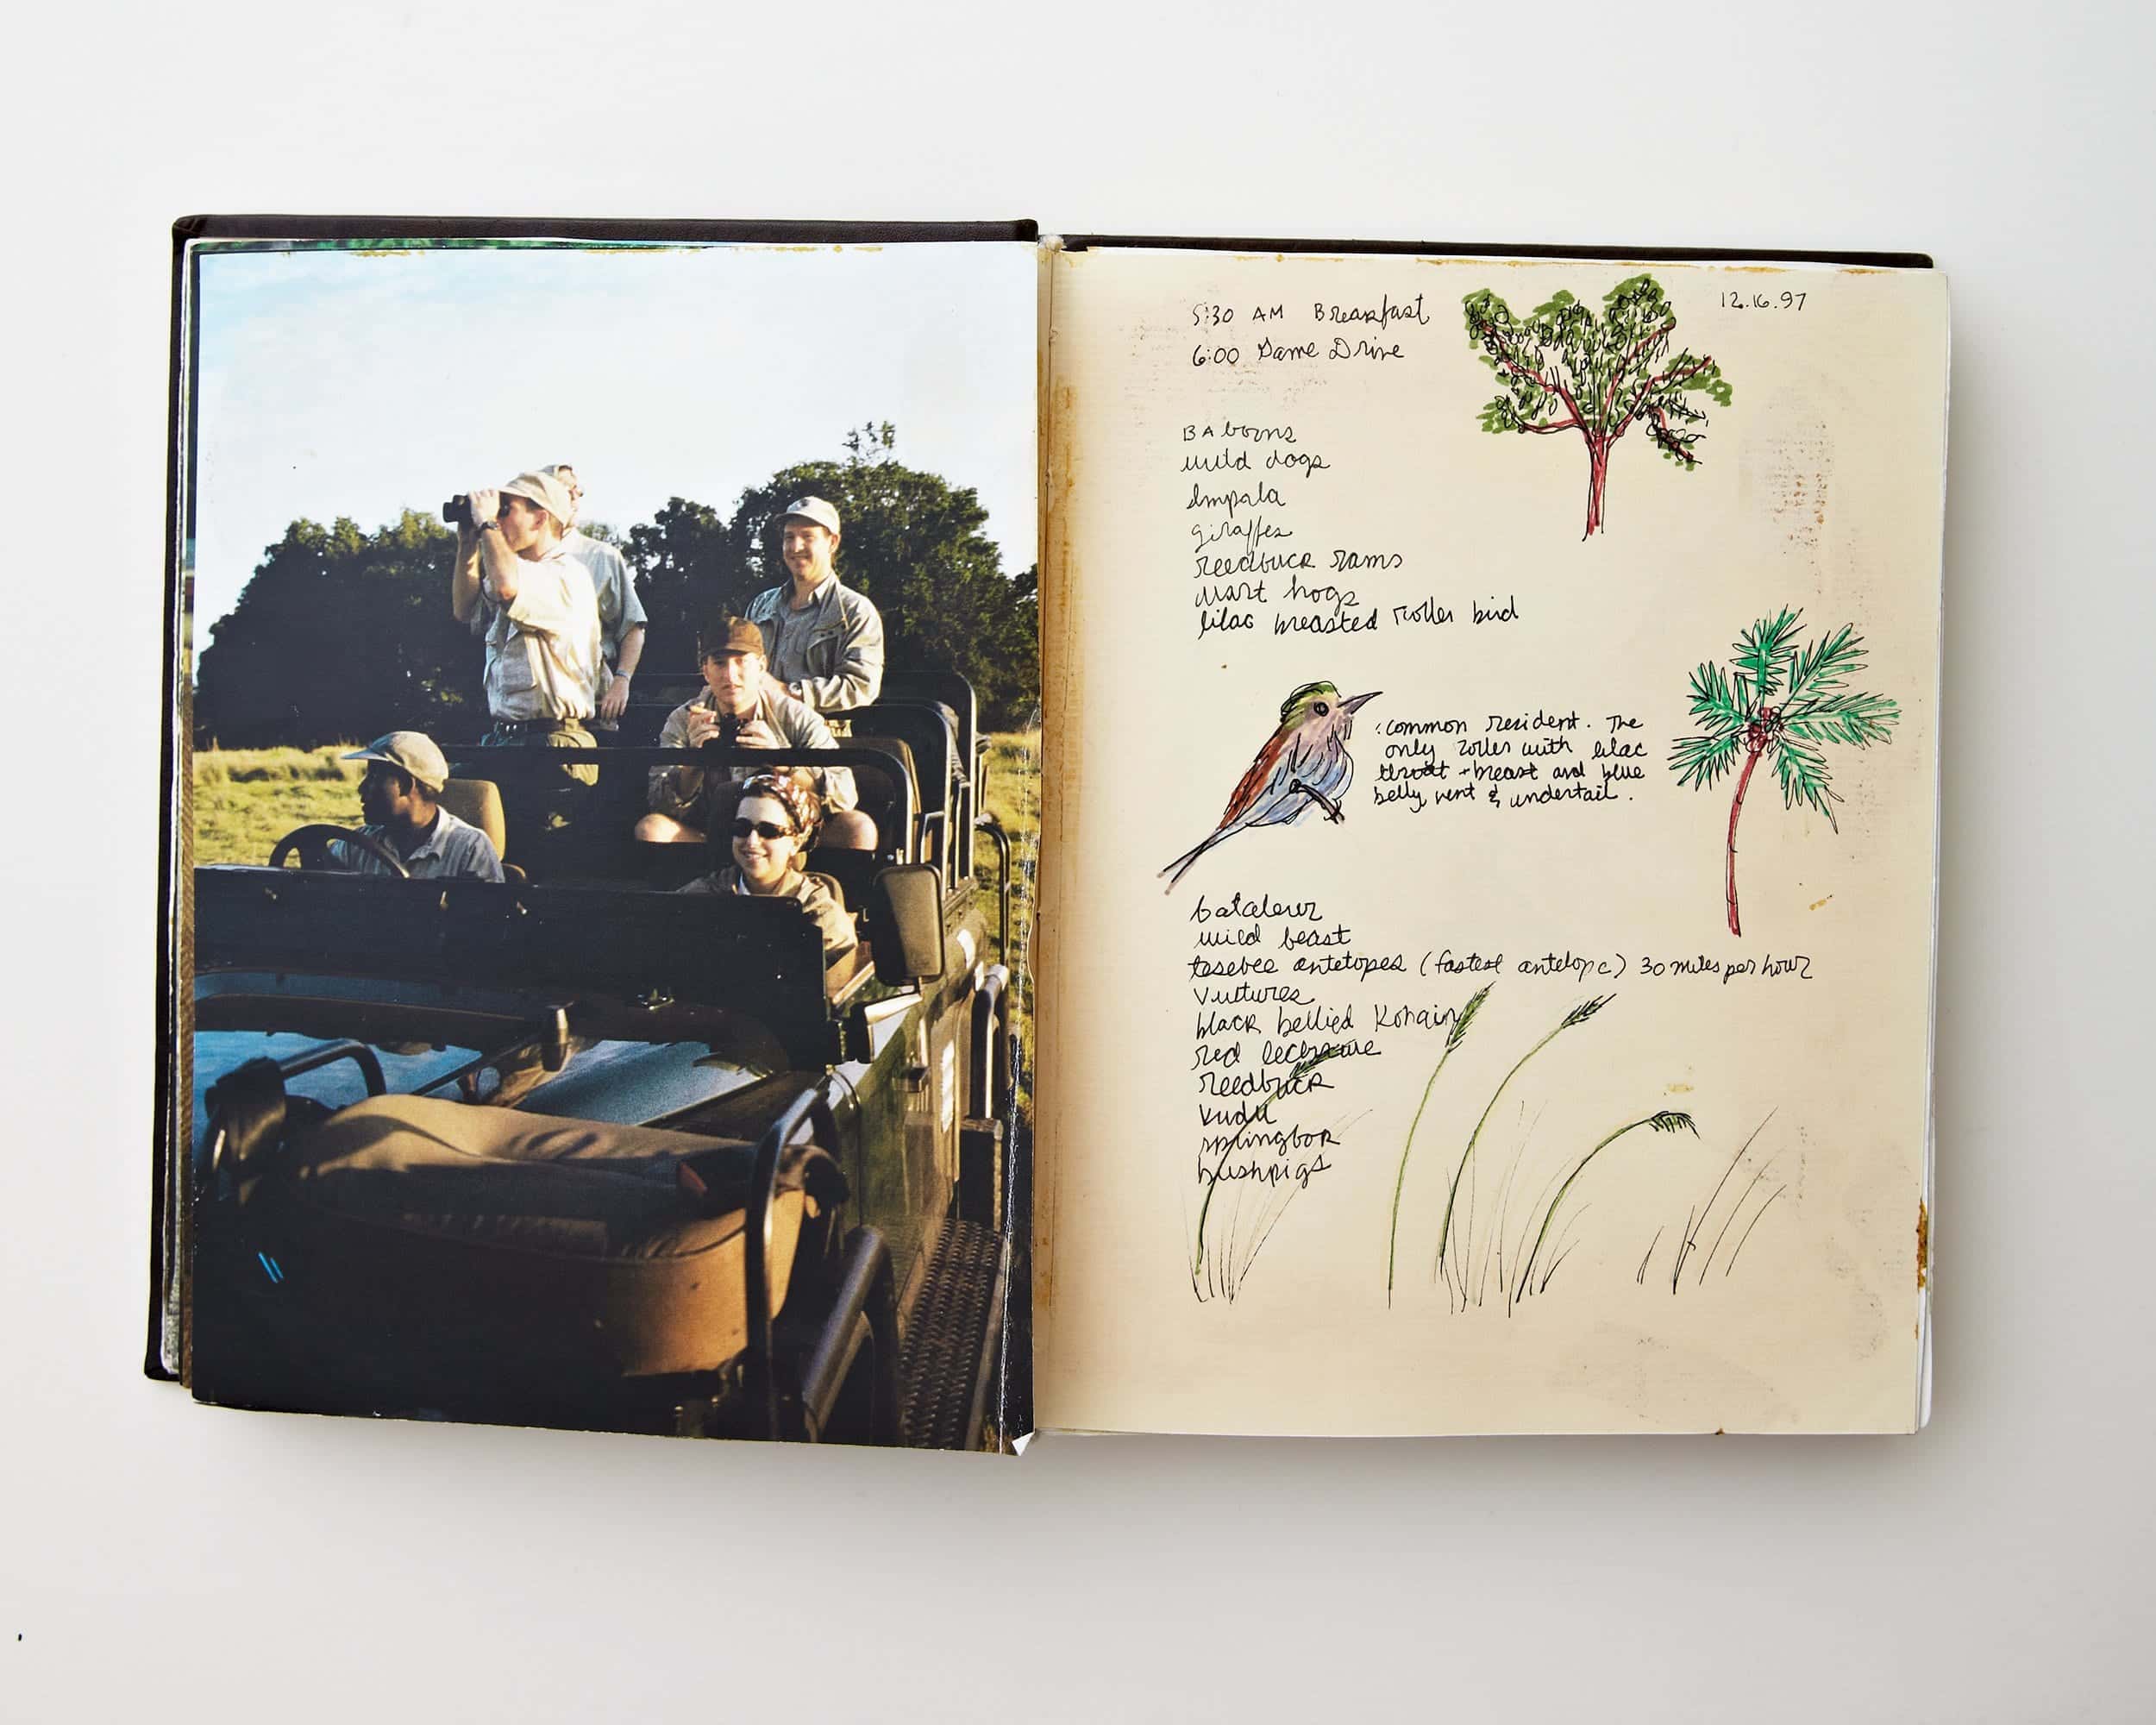 5:30 AM Breakfast
12.16.97
6:00 Game Drive
BAboons
wild dogs
Impala
giraffes
reedbuck rams
wart hogs
lilac breasted roller bird
: common resident. The
only roller with lilac
throat + breast and blue
belly, vent & undertail.
bataleur
wild beast
tesebee antelopes (fastest antelope) 30 miles per hour
Vultures
black bellied Korhain
red lechwe
reedbuck
kudu
springbok
bushpigs